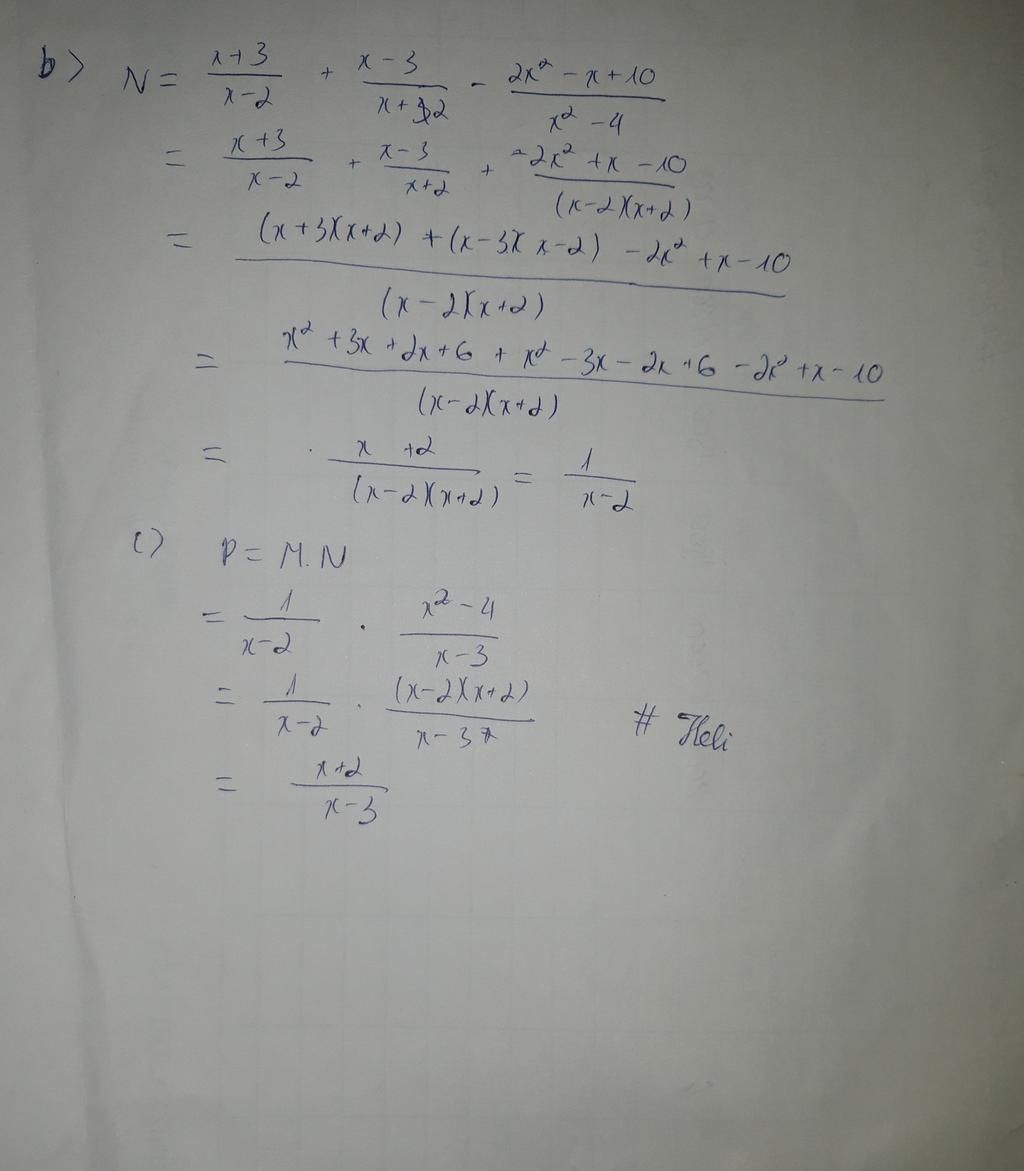 b> N = \frac{x+3}{x-2} + \frac{x-3}{x+2} - \frac{2x^2-x+10}{x^2-4}
= \frac{x+3}{x-2} + \frac{x-3}{x+2} + \frac{-2x^2+x-10}{(x-2)(x+2)}
= \frac{(x+3)(x+2)+(x-3)(x-2)-2x^2+x-10}{(x-2)(x+2)}
= \frac{x^2+3x+2x+6+x^2-3x-2x+6-2x^2+x-10}{(x-2)(x+2)}
= \frac{x+2}{(x-2)(x+2)} = \frac{1}{x-2}
c) P = M.N
= \frac{1}{x-2} . \frac{x^2-4}{x-3}
= \frac{1}{x-2} . \frac{(x-2)(x+2)}{x-3}
# Heli
= \frac{x+2}{x-3}